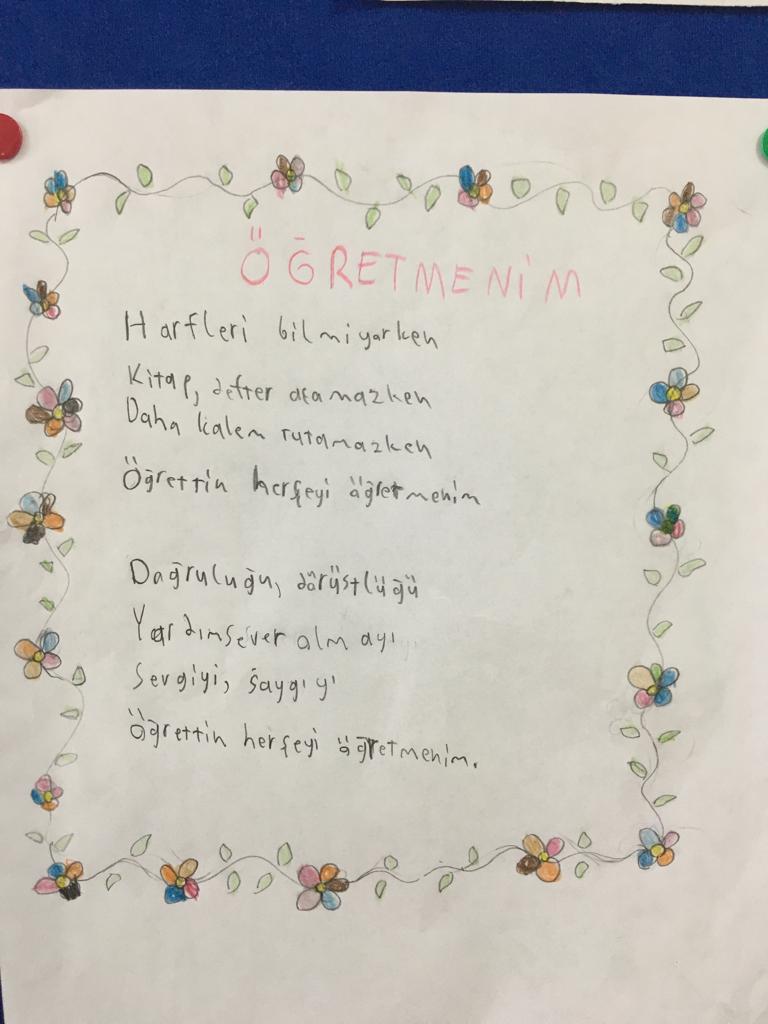 ÖĞRETMENİM
Harfleri bilmiyorken
Kitap, defter açamazken
Daha kalem tutamazken
Öğrettin herşeyi öğretmenim
Doğruluğu, dörüstlüğü
Yardımsever olmayı
Sevgiyi, saygıyı
Öğrettin herşeyi öğretmenim.